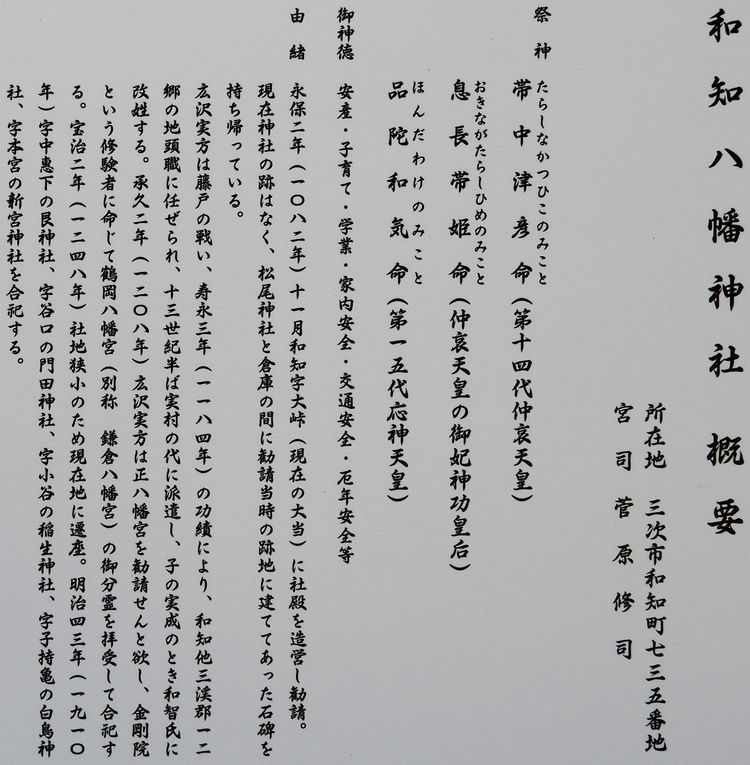 和知八幡神社概要
所在地　三次市和知町七三五番地
宮司　菅原修司
祭神
たらしなかつひこのみこと
帯中津彦命（第十四代仲哀天皇）
おきながたらしひめのみこと
息長帯姫命（仲哀天皇の御妃神功皇后）
ほんだわけのみこと
品陀和気命（第一五代応神天皇）
御神徳　安産・子育て・学業・家内安全・交通安全・厄年安全等
由緒　永保二年（一〇八二年）十一月和知字大峠（現在の大当）に社殿を造営し勧請。
現在神社の跡はなく、松尾神社と倉庫の間に勧請当時の跡地に建ててあった石碑を
持ち帰っている。
広沢実方は藤戸の戦い、寿永三年（一一八四年）の功績により、和知他三渓郡一二
郷の地頭職に任ぜられ、十三世紀半ば実村の代に派遣し、子の実成のとき和智氏に
改姓する。承久二年（一二〇八年）広沢実方は正八幡宮を勧請せんと欲し、金剛院
という修験者に命じて鶴岡八幡宮（別称　鎌倉八幡宮）の御分霊を拝受して合祀す
る。宝治二年（一二四八年）社地狭小のため現在地に遷座。明治四三年（一九一〇
年）字中惠下の艮神社、字谷口の門田神社、字小谷の稲生神社、字子持亀の白鳥神
社、字本宮の新宮神社を合祀する。